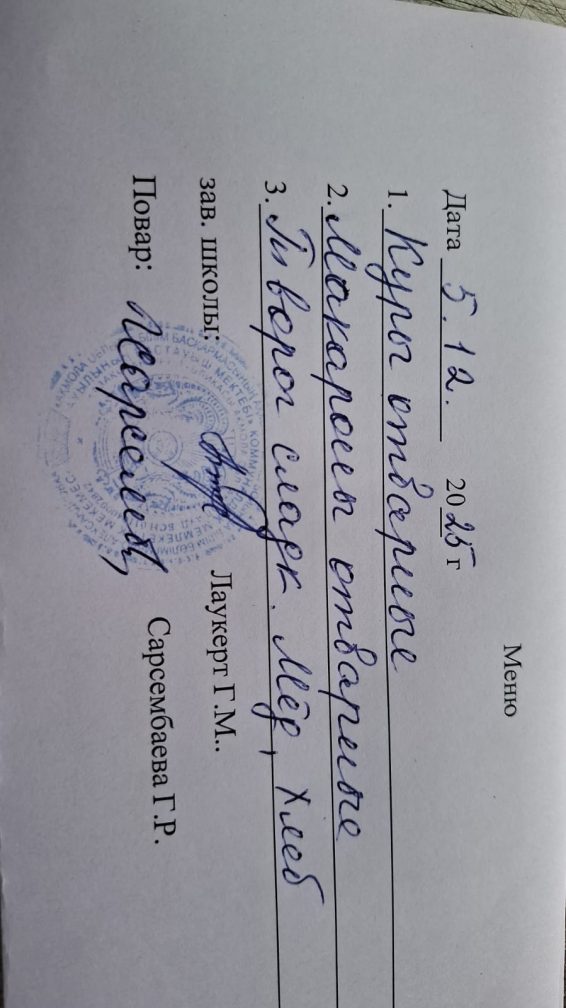 Меню
Дата 5.12. 2025 г
1. Куры отварные
2. Макароны отварные
3. Творог сладк. Мёд, хлеб
зав. школы: Лаукерт Г.М..
Повар: Сарсембаева Г.Р.